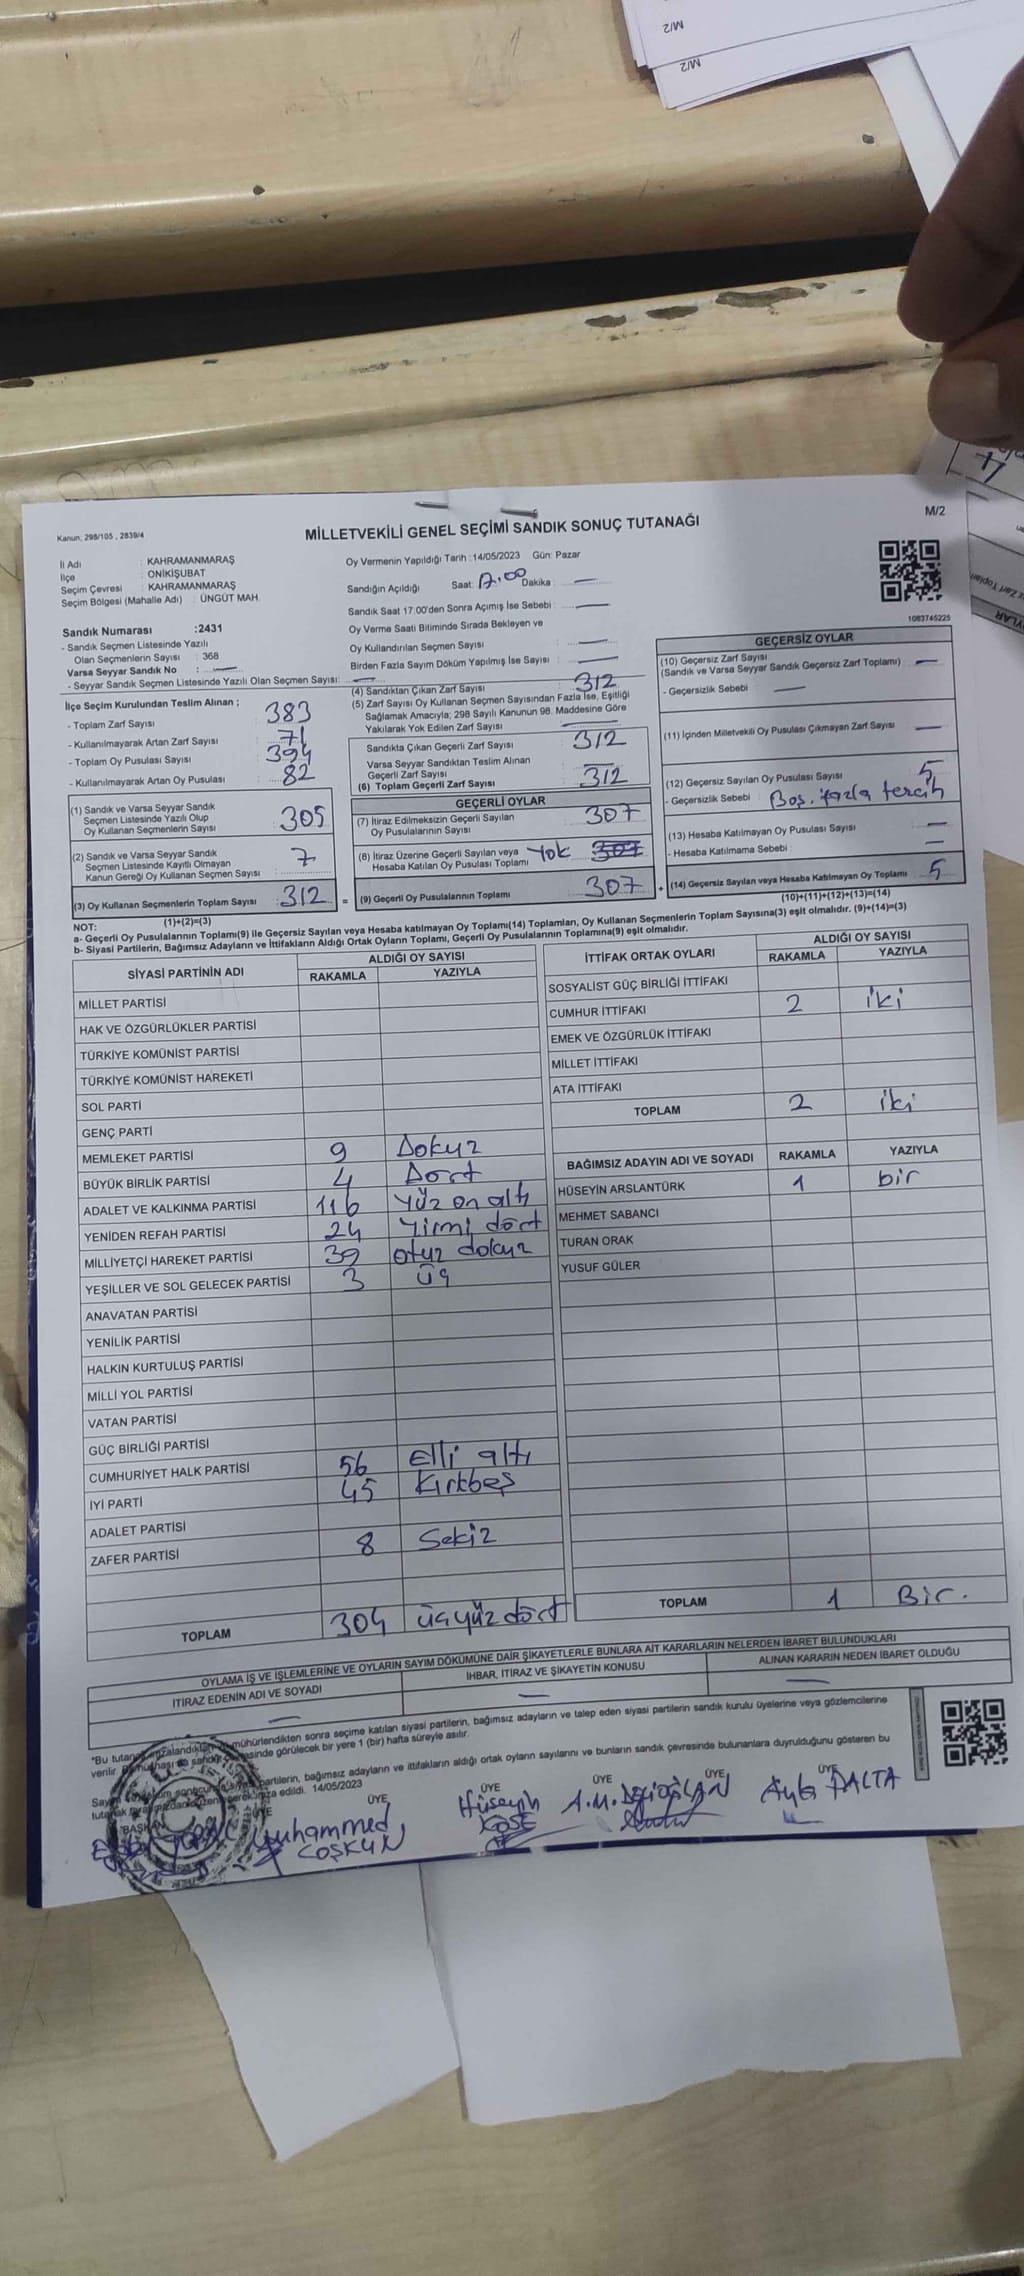 M/2
M/2
Kanun; 298/105 , 2839/4
MİLLETVEKİLİ GENEL SEÇİMİ SANDIK SONUÇ TUTANAĞI
M/2
İl Adı : KAHRAMANMARAŞ
İlçe : ONİKİŞUBAT
Seçim Çevresi : KAHRAMANMARAŞ
Seçim Bölgesi (Mahalle Adı) : ÜNGÜT MAH.
Sandık Numarası :2431
- Sandık Seçmen Listesinde Yazılı
Olan Seçmenlerin Sayısı : 368
Varsa Seyyar Sandık No : —
- Seyyar Sandık Seçmen Listesinde Yazılı Olan Seçmen Sayısı: —
Oy Vermenin Yapıldığı Tarih :14/05/2023 Gün: Pazar
Sandığın Açıldığı Saat: 17.00 Dakika : —
Sandık Saat 17:00'den Sonra Açımış İse Sebebi : —
Oy Verme Saati Bitiminde Sırada Bekleyen ve
Oy Kullandırılan Seçmen Sayısı : —
Birden Fazla Sayım Döküm Yapılmış İse Sayısı : —
1083745225
İlçe Seçim Kurulundan Teslim Alınan ;
- Toplam Zarf Sayısı : 383
- Kullanılmayarak Artan Zarf Sayısı : 71
- Toplam Oy Pusulası Sayısı : 394
- Kullanılmayarak Artan Oy Pusulası : 82
(1) Sandık ve Varsa Seyyar Sandık
Seçmen Listesinde Yazılı Olup
Oy Kullanan Seçmenlerin Sayısı : 305
(2) Sandık ve Varsa Seyyar Sandık
Seçmen Listesinde Kayıtlı Olmayan
Kanun Gereği Oy Kullanan Seçmen Sayısı : 7
(3) Oy Kullanan Seçmenlerin Toplam Sayısı : 312 =
(1)+(2)=(3)
(4) Sandıktan Çıkan Zarf Sayısı : 312
(5) Zarf Sayısı Oy Kullanan Seçmen Sayısından Fazla İse, Eşitliği
Sağlamak Amacıyla; 298 Sayılı Kanunun 98. Maddesine Göre
Yakılarak Yok Edilen Zarf Sayısı : —
Sandıkta Çıkan Geçerli Zarf Sayısı : 312
Varsa Seyyar Sandıktan Teslim Alınan
Geçerli Zarf Sayısı : —
(6) Toplam Geçerli Zarf Sayısı : 312
GEÇERLİ OYLAR
(7) İtiraz Edilmeksizin Geçerli Sayılan
Oy Pusulalarının Sayısı : 307
(8) İtiraz Üzerine Geçerli Sayılan veya
Hesaba Katılan Oy Pusulası Toplamı : Yok 307
(9) Geçerli Oy Pusulalarının Toplamı : 307 +
GEÇERSİZ OYLAR
(10) Geçersiz Zarf Sayısı
(Sandık ve Varsa Seyyar Sandık Geçersiz Zarf Toplamı) : —
- Geçersizlik Sebebi : —
(11) İçinden Milletvekili Oy Pusulası Çıkmayan Zarf Sayısı : —
(12) Geçersiz Sayılan Oy Pusulası Sayısı : 5
- Geçersizlik Sebebi : Boş. fazla tercih
(13) Hesaba Katılmayan Oy Pusulası Sayısı : —
- Hesaba Katılmama Sebebi : —
(14) Geçersiz Sayılan veya Hesaba Katılmayan Oy Toplamı : 5
(10)+(11)+(12)+(13)=(14)
NOT:
a- Geçerli Oy Pusulalarının Toplamı(9) ile Geçersiz Sayılan veya Hesaba katılmayan Oy Toplamı(14) Toplamları, Oy Kullanan Seçmenlerin Toplam Sayısına(3) eşit olmalıdır. (9)+(14)=(3)
b- Siyasi Partilerin, Bağımsız Adayların ve İttifakların Aldığı Ortak Oyların Toplamı, Geçerli Oy Pusulalarının Toplamına(9) eşit olmalıdır.
SİYASİ PARTİNİN ADI ALDIĞI OY SAYISI
RAKAMLA YAZIYLA
MİLLET PARTİSİ
HAK VE ÖZGÜRLÜKLER PARTİSİ
TÜRKİYE KOMÜNİST PARTİSİ
TÜRKİYE KOMÜNİST HAREKETİ
SOL PARTİ
GENÇ PARTİ
MEMLEKET PARTİSİ 9 Dokuz
BÜYÜK BİRLİK PARTİSİ 4 Dört
ADALET VE KALKINMA PARTİSİ 116 Yüz on altı
YENİDEN REFAH PARTİSİ 24 Yirmi dört
MİLLİYETÇİ HAREKET PARTİSİ 39 otuz dokuz
YEŞİLLER VE SOL GELECEK PARTİSİ 3 üç
ANAVATAN PARTİSİ
YENİLİK PARTİSİ
HALKIN KURTULUŞ PARTİSİ
MİLLİ YOL PARTİSİ
VATAN PARTİSİ
GÜÇ BİRLİĞİ PARTİSİ
CUMHURİYET HALK PARTİSİ 56 Elli altı
İYİ PARTİ 45 Kırkbeş
ADALET PARTİSİ
ZAFER PARTİSİ 8 Sekiz
TOPLAM 304 üçyüz dört
İTTİFAK ORTAK OYLARI ALDIĞI OY SAYISI
RAKAMLA YAZIYLA
SOSYALİST GÜÇ BİRLİĞİ İTTİFAKI
CUMHUR İTTİFAKI 2 iki
EMEK VE ÖZGÜRLÜK İTTİFAKI
MİLLET İTTİFAKI
ATA İTTİFAKI
TOPLAM 2 iki
BAĞIMSIZ ADAYIN ADI VE SOYADI RAKAMLA YAZIYLA
HÜSEYİN ARSLANTÜRK 1 bir
MEHMET SABANCI
TURAN ORAK
YUSUF GÜLER
TOPLAM 1 Bir.
OYLAMA İŞ VE İŞLEMLERİNE VE OYLARIN SAYIM DÖKÜMÜNE DAİR ŞİKAYETLERLE BUNLARA AİT KARARLARIN NELERDEN İBARET BULUNDUKLARI
İTİRAZ EDENİN ADI VE SOYADI İHBAR, İTİRAZ VE ŞİKAYETİN KONUSU ALINAN KARARIN NEDEN İBARET OLDUĞU
— — —
mühürlendikten sonra seçime katılan siyasi partilerin, bağımsız adayların ve talep eden siyasi partilerin sandık kurulu üyelerine veya gözlemcilerine
verilir. görülecek bir yere 1 (bir) hafta süreyle asılır.
partilerin, bağımsız adayların ve ittifakların aldığı ortak oyların sayılarını ve bunların sandık çevresinde bulunanlara duyrulduğunu gösteren bu
imza edildi. 14/05/2023
BAŞKAN ÜYE ÜYE ÜYE ÜYE ÜYE
Muhammed COŞKUN
Hüseyin KÖSE
Ayla PALTA